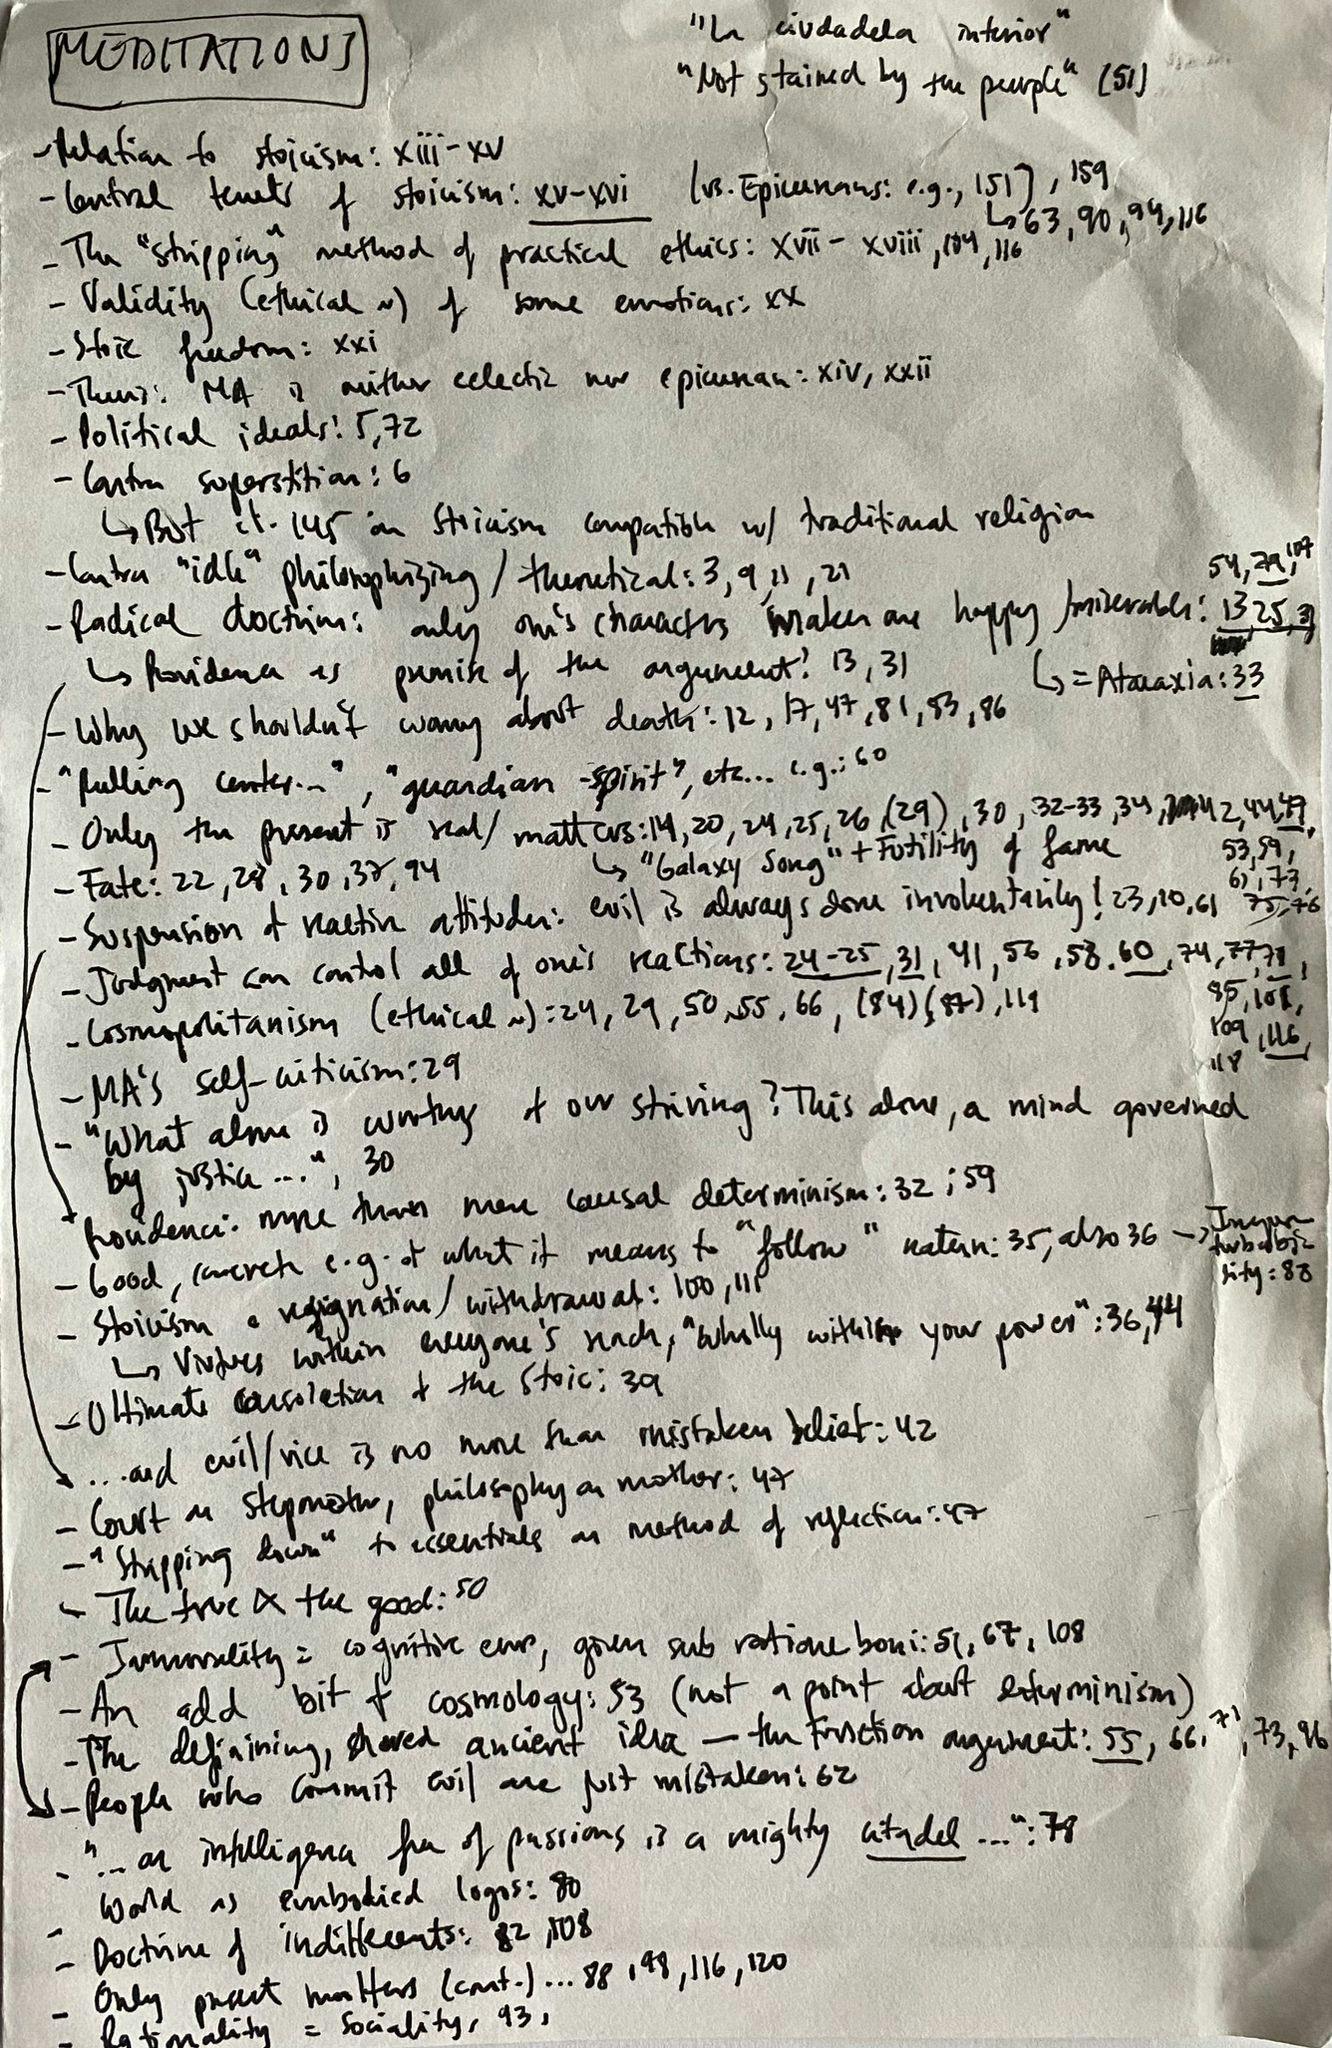 MEDITATIONS
"La ciudadela interior"
"Not stained by the purple" (51)
- Relation to stoicism: xiii-xv
- Central tenets of stoicism: xv-xvi (vs. Epicureans: e.g., 151), 159
↳ 63, 90, 94, 116
- The "stripping" method of practical ethics: xvii - xviii, 104, 116
- Validity (ethical ~) of some emotions: xx
- Stoic freedom: xxi
- Thesis: MA is neither eclectic nor epicurean: xiv, xxii
- Political ideals: 5, 72
- Contra superstition: 6
↳ But cf. 145 on Stoicism compatible w/ traditional religion
- Contra "idle" philosophizing / theoretical: 3, 9, 11, 21
54, 29, 107
- Radical doctrine: only one's character makes one happy / miserable: 13, 25, 31
↳ Providence as premise of the argument? 13, 31
↳ = Ataraxia: 33
- Why we shouldn't worry about death: 12, 17, 47, 81, 83, 86
- "Rulling center...", "guardian-spirit", etc... e.g.: 60
- Only the present is real / matters: 14, 20, 24, 25, 26, (29), 30, 32-33, 34, 42, 44, 49,
53, 59,
61, 73,
75, 76
↳ "Galaxy Song" + Futility of fame
- Fate: 22, 28, 30, 37, 94
- Suspension of reactive attitudes: evil is always done involuntarily! 23, 10, 61
- Judgment can control all of one's reactions: 24-25, 31, 41, 56, 58, 60, 74, 77, 78,
85, 108,
109, 116,
118
- Cosmopolitanism (ethical ~): 24, 29, 50, 55, 66, (84) (87), 119
- MA's self-criticism: 29
- "What alone is worthy of our striving? This alone, a mind governed
by justice ...", 30
Providence: more than mere causal determinism: 32; 59
- Good, concrete e.g. of what it means to "follow" nature: 35, also 36 → Imperturbability: 88
- Stoicism & resignation / withdrawal: 100, 111
↳ Virtues within everyone's reach, "wholly within your power": 36, 44
- Ultimate consolation of the Stoic: 39
...and evil/vice is no more than mistaken belief: 42
- Court as stepmother, philosophy as mother: 47
- "Stripping down" to essentials as method of reflection: 47
- The true & the good: 50
- Immorality = cognitive error, given sub ratione boni: 51, 67, 108
- An odd bit of cosmology: 53 (not a point about determinism)
- The defining, shared ancient idea — the function argument: 55, 66, 71, 73, 96
- People who commit evil are just mistaken: 62
- "... an intelligence free of passions is a mighty citadel ...": 78
- World as embodied logos: 80
- Doctrine of indifferents: 82, 108
- Only present matters (cont.) ... 88, 98, 116, 120
- Rationality = Sociality, 93,